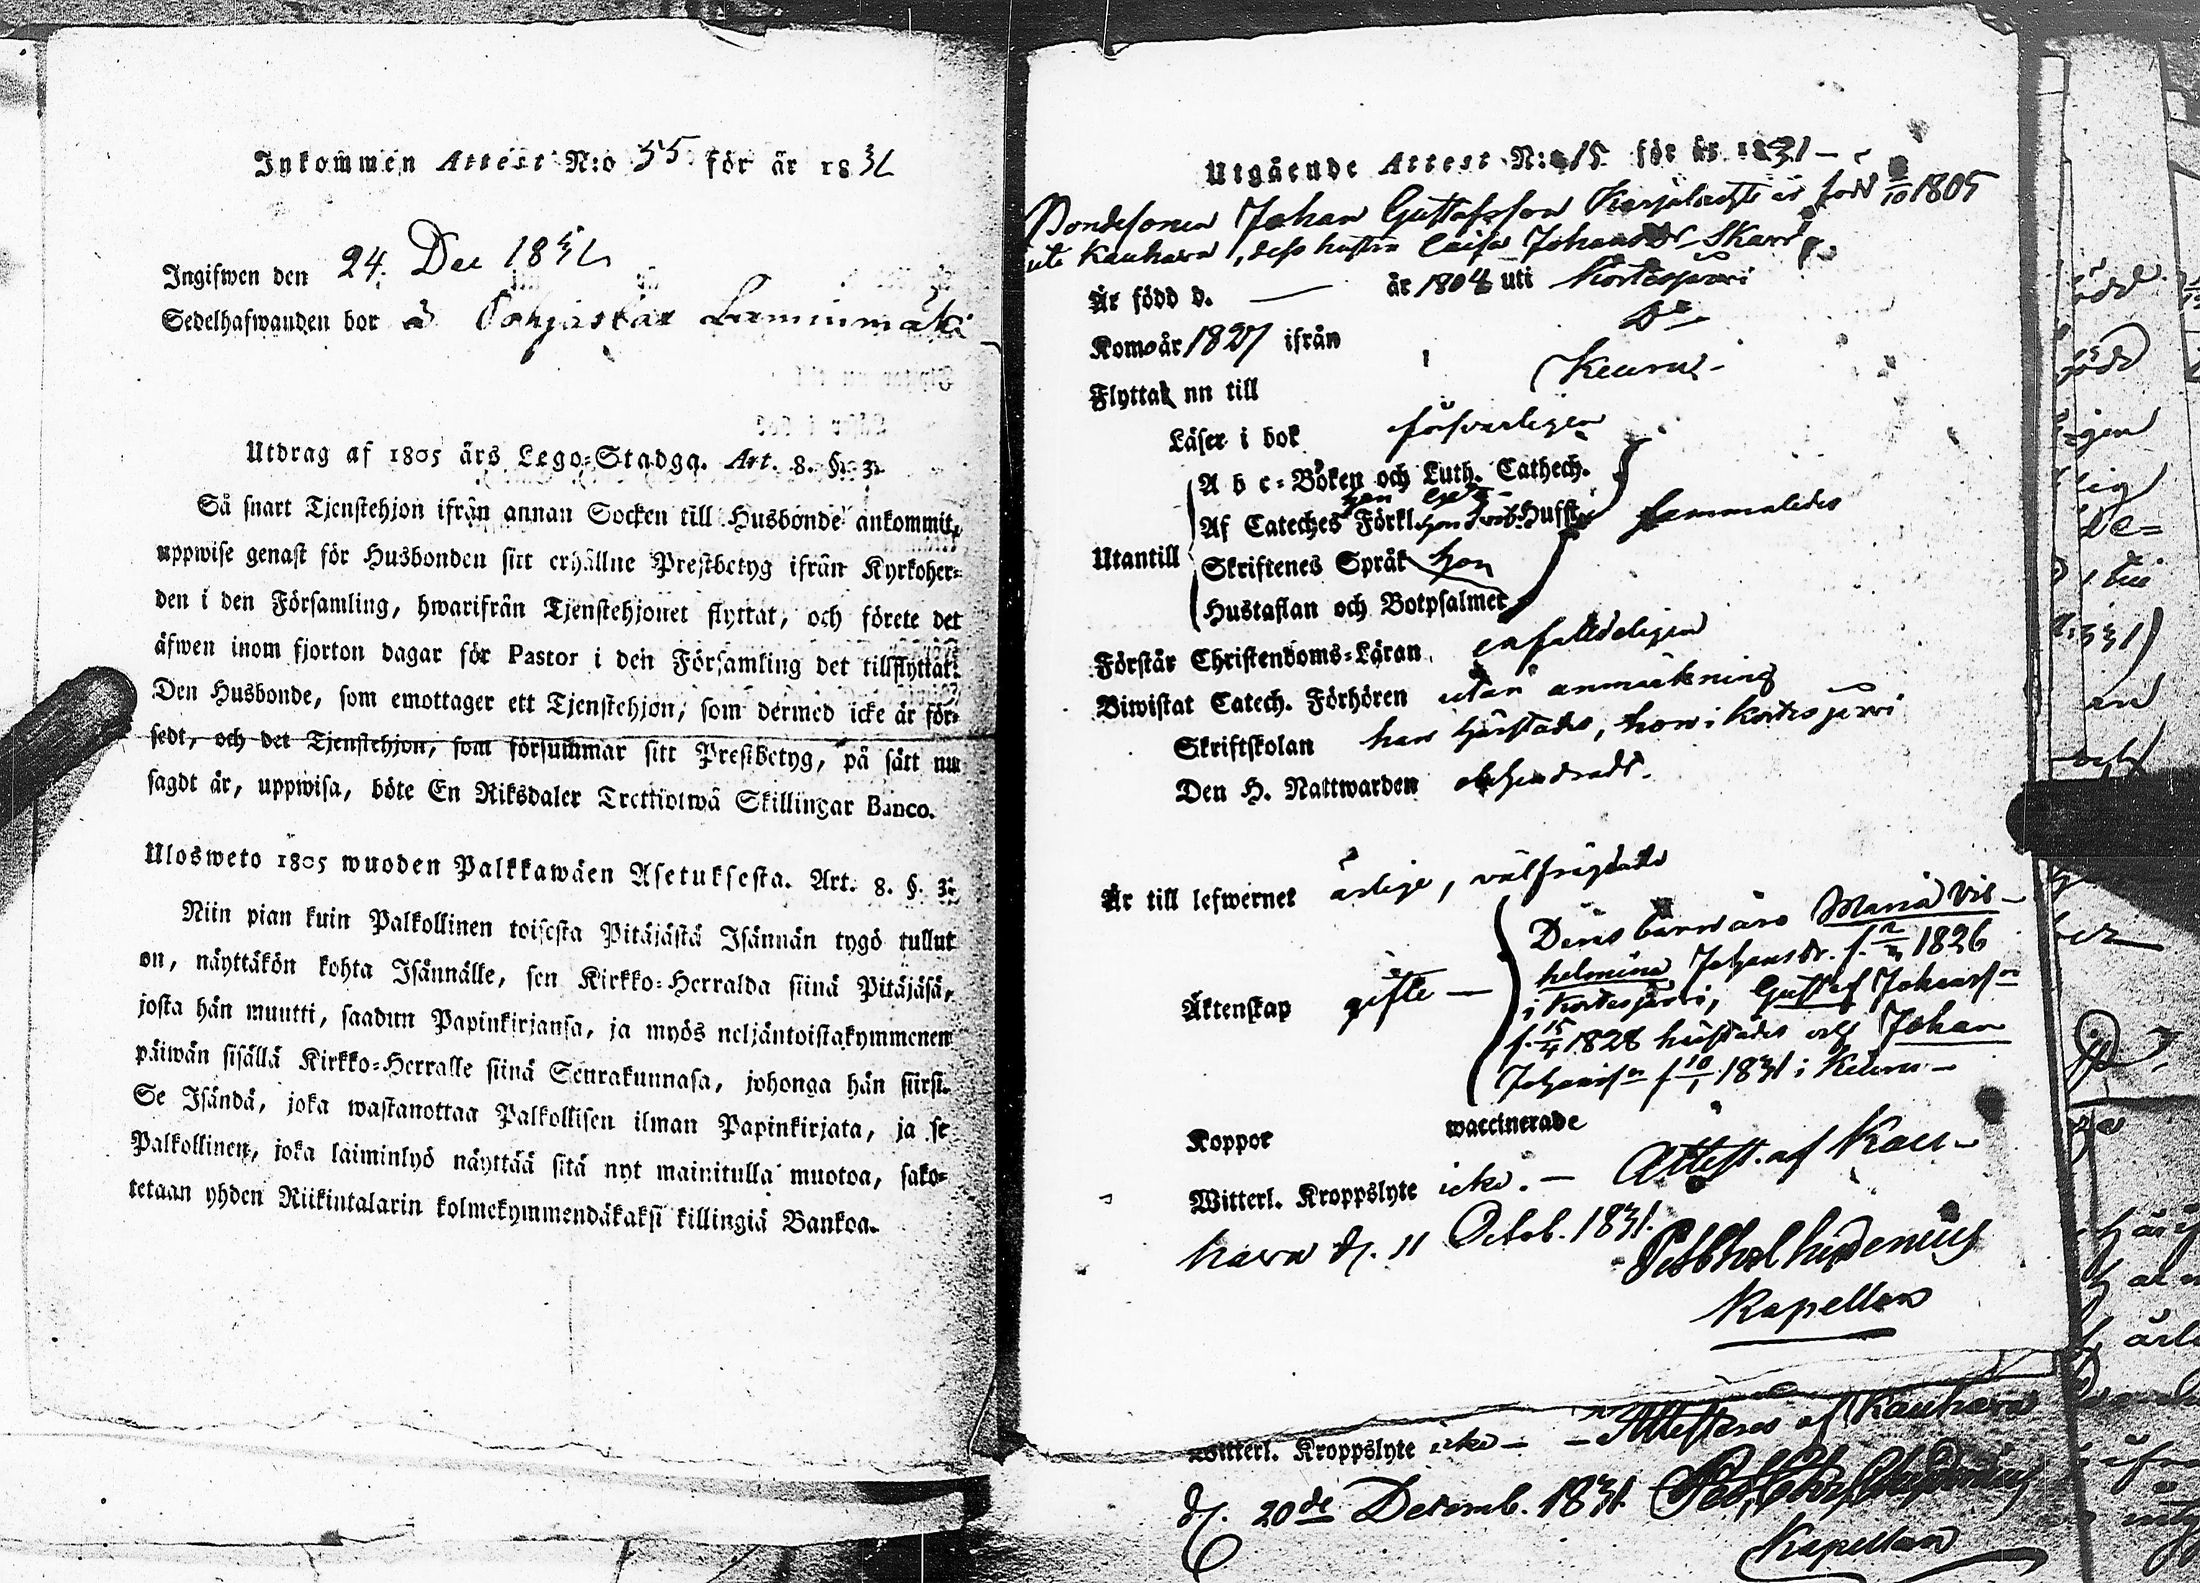 Inkommen Attest N:o 55 för år 1831
Ingifwen den 24. Dec 1831
Sedelhafwanden bor å Pohjaslax Lamminmäki
Utdrag af 1805 års Lego-Stadga. Art. 8. §. 3.
Så snart Tjenstehjon ifrån annan Socken till Husbonde ankommit,
uppwise genast för Husbonden sitt erhållne Prestbetyg ifrån Kyrkoher-
den i den Församling, hwarifrån Tjenstehjonet flyttat, och förete det
äfwen inom fjorton dagar för Pastor i den Församling det tillflyttat.
Den Husbonde, som emottager ett Tjenstehjon, som dermed icke är för-
sedt, och det Tjenstehjon, som försummar sitt Prestbetyg, på sätt nu
sagdt är, uppwisa, böte En Riksdaler Trettiotwå Skillingar Banco.
Ulosweto 1805 wuoden Palkkawäen Asetuksesta. Art. 8. §. 3.
Niin pian kuin Palkollinen toisesta Pitäjästä Isännän tygö tullut
on, näyttäkön kohta Isännälle, sen Kirkko-Herralda siinä Pitäjäsä,
josta hän muutti, saadun Papinkirjansa, ja myös neljäntoistakymmenen
päiwän sisällä Kirkko-Herralle siinä Seurakunnasa, johonga hän siirsi.
Se Isändä, joka wastanottaa Palkollisen ilman Papinkirjata, ja se
Palkollinen, joka laiminlyö näyttää sitä nyt mainitulla muotoa, sako-
tetaan yhden Riikintalarin kolmekymmendäkaksi killingiä Bankoa.
Utgående Attest N:o 15 för år 1831 –
Bondesonen Johan Gustafsson är född /10 1805
uti Kauhava, dess hustru Caisa Johansdr
Är född d. — år 1804 uti Kortesjärvi
Kom år 1827 ifrån Do
Flyttar nu till Keuru –
Läser i bok försvarligen
A b c-Boken och Luth. Cathech.
Af Cateches Förkl. Hufst. sammaledes
Utantill
Skriftenes Språk hon
Hustaflan och Botpsalmer
Förstår Christendoms-Läran enfaldeligen
Biwistat Catech. Förhören utan anmärkning
Skriftskolan han härstädes, hon i Kortesjärvi
Den H. Nattwarden obehindrade.
Är till lefwernet ärlige, välfrägdade
Äktenskap gifte —
Deras barn äro Maria Vil-
helmina Johansdr. f. 1826
i Kortesjärvi, Gustaf Johansson
f. 15/4 1828 härstädes och Johan
Johansson f 10/1 1831 i Keuru –
Koppor waccinerade
Witterl. Kroppslyte icke. — Attest. af Kau-
hava d. 11 Octob. 1831.
Kapellan
Witterl. Kroppslyte icke — – Attesteras af Kauhava
d. 20de Decemb. 1831
Kapellan